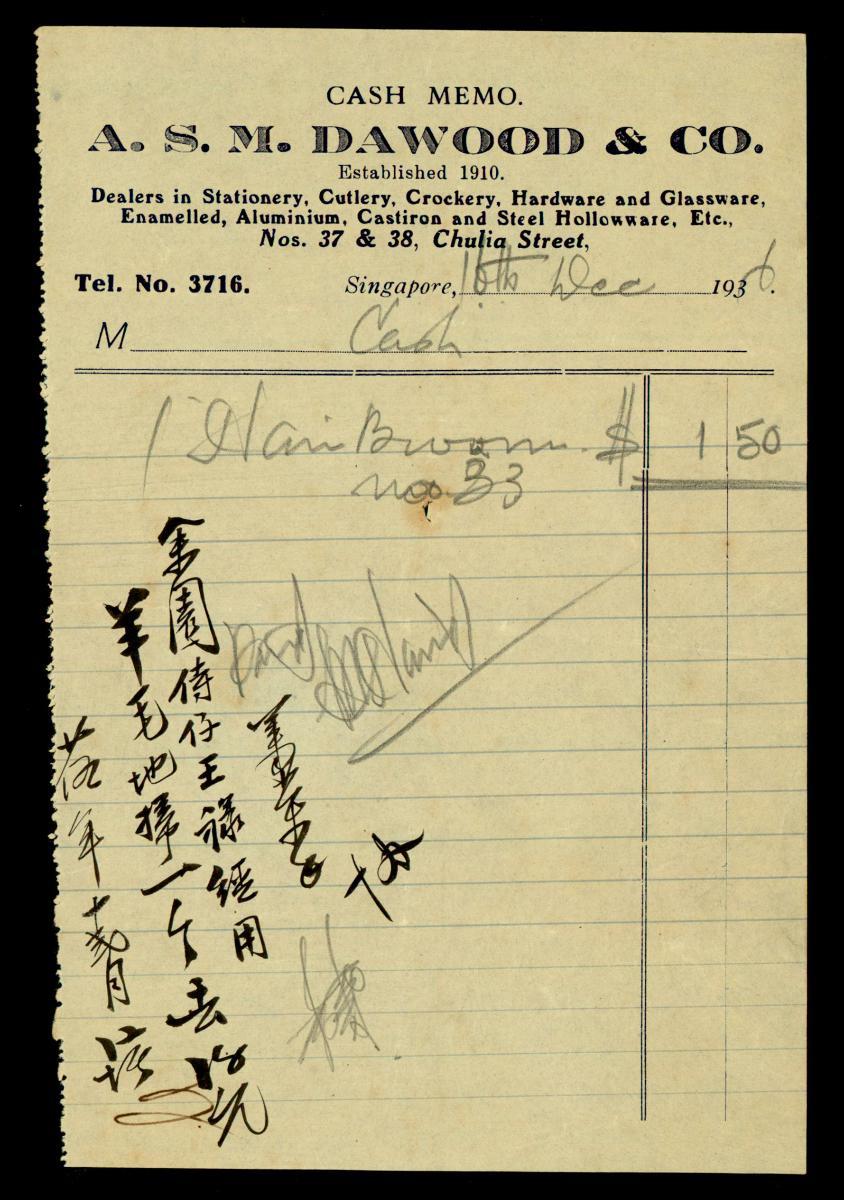 CASH MEMO.
A. S. M. DAWOOD & CO.
Established 1910.
Dealers in Stationery, Cutlery, Crockery, Hardware and Glassware,
Enamelled, Aluminium, Castiron and Steel Hollowware, Etc.,
Nos. 37 & 38, Chulia Street,
Tel. No. 3716. Singapore, 16th Dec 1936.
M Cash
1 Hair Broom $ 1 50
no 33
金園侍仔王祿經用
羊毛地掃一个去
年 月